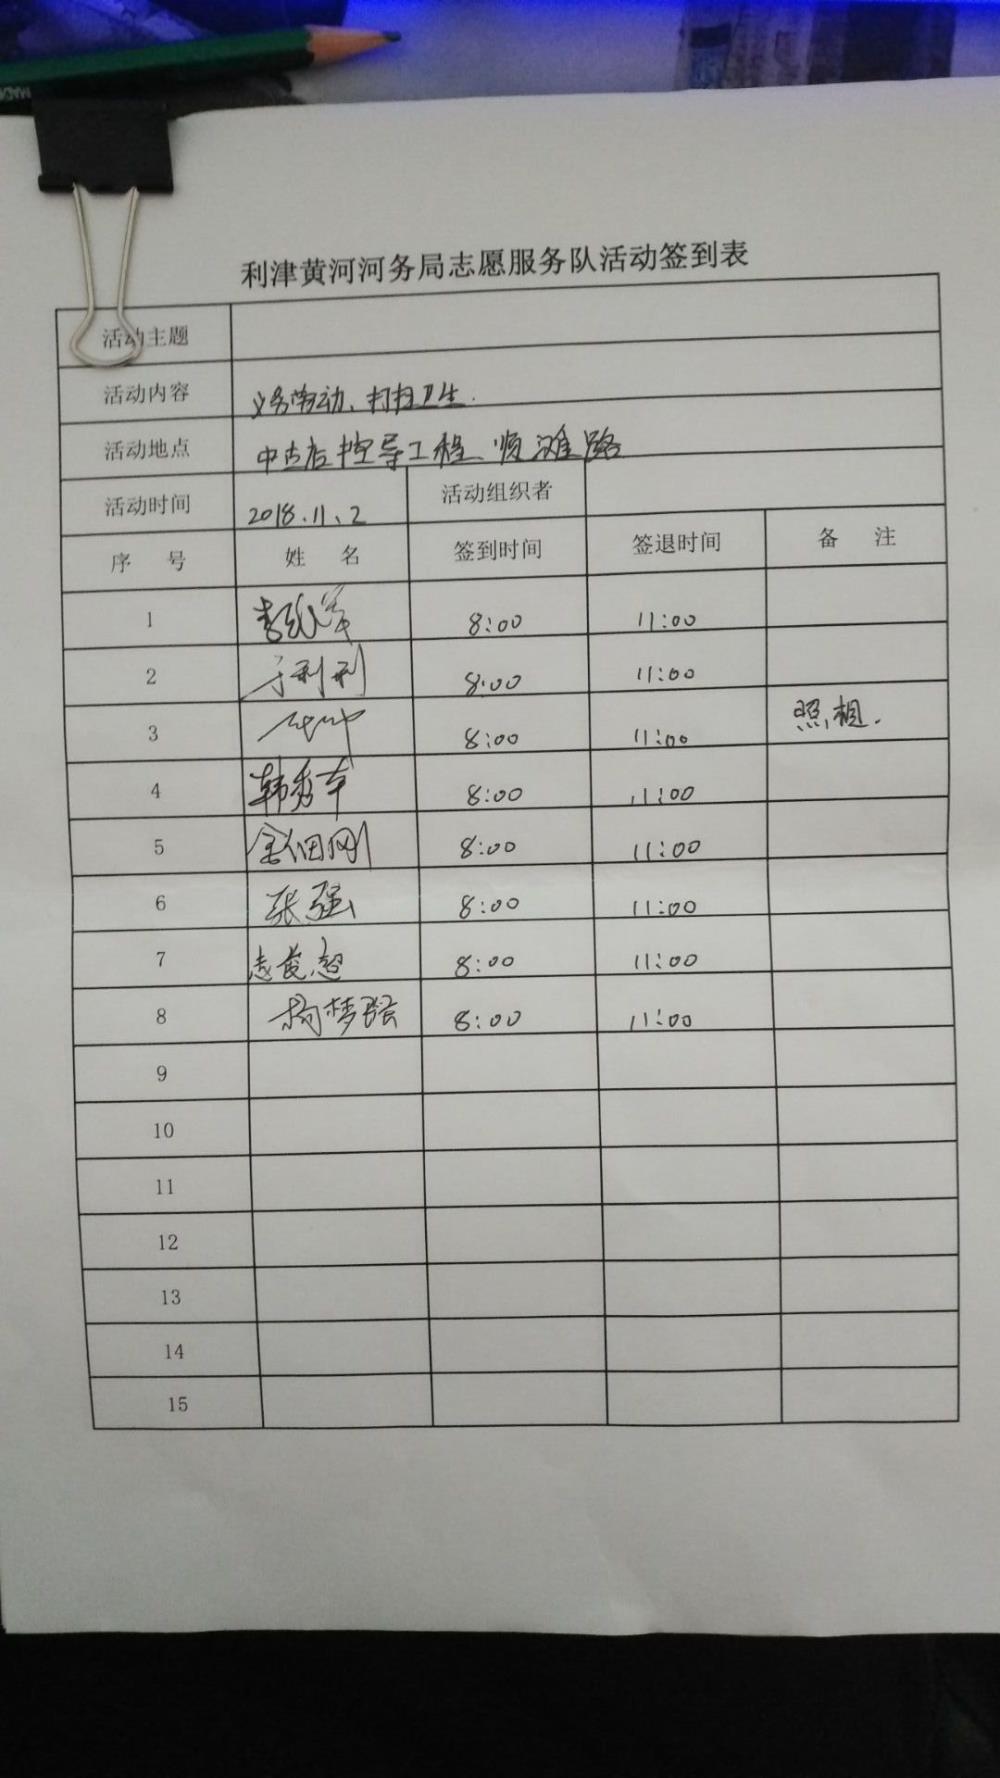 利津黄河河务局志愿服务队活动签到表
活动主题
活动内容 义务劳动、打扫卫生.
活动地点 中古店控导工程、顺滩路
活动时间 2018.11.2 活动组织者
序 号 姓 名 签到时间 签退时间 备 注
1 8:00 11:00
2 于利利 8:00 11:00
3 8:00 11:00 照相.
4 韩秀军 8:00 11:00
5 8:00 11:00
6 张强 8:00 11:00
7 8:00 11:00
8 杨梦 8:00 11:00
9
10
11
12
13
14
15